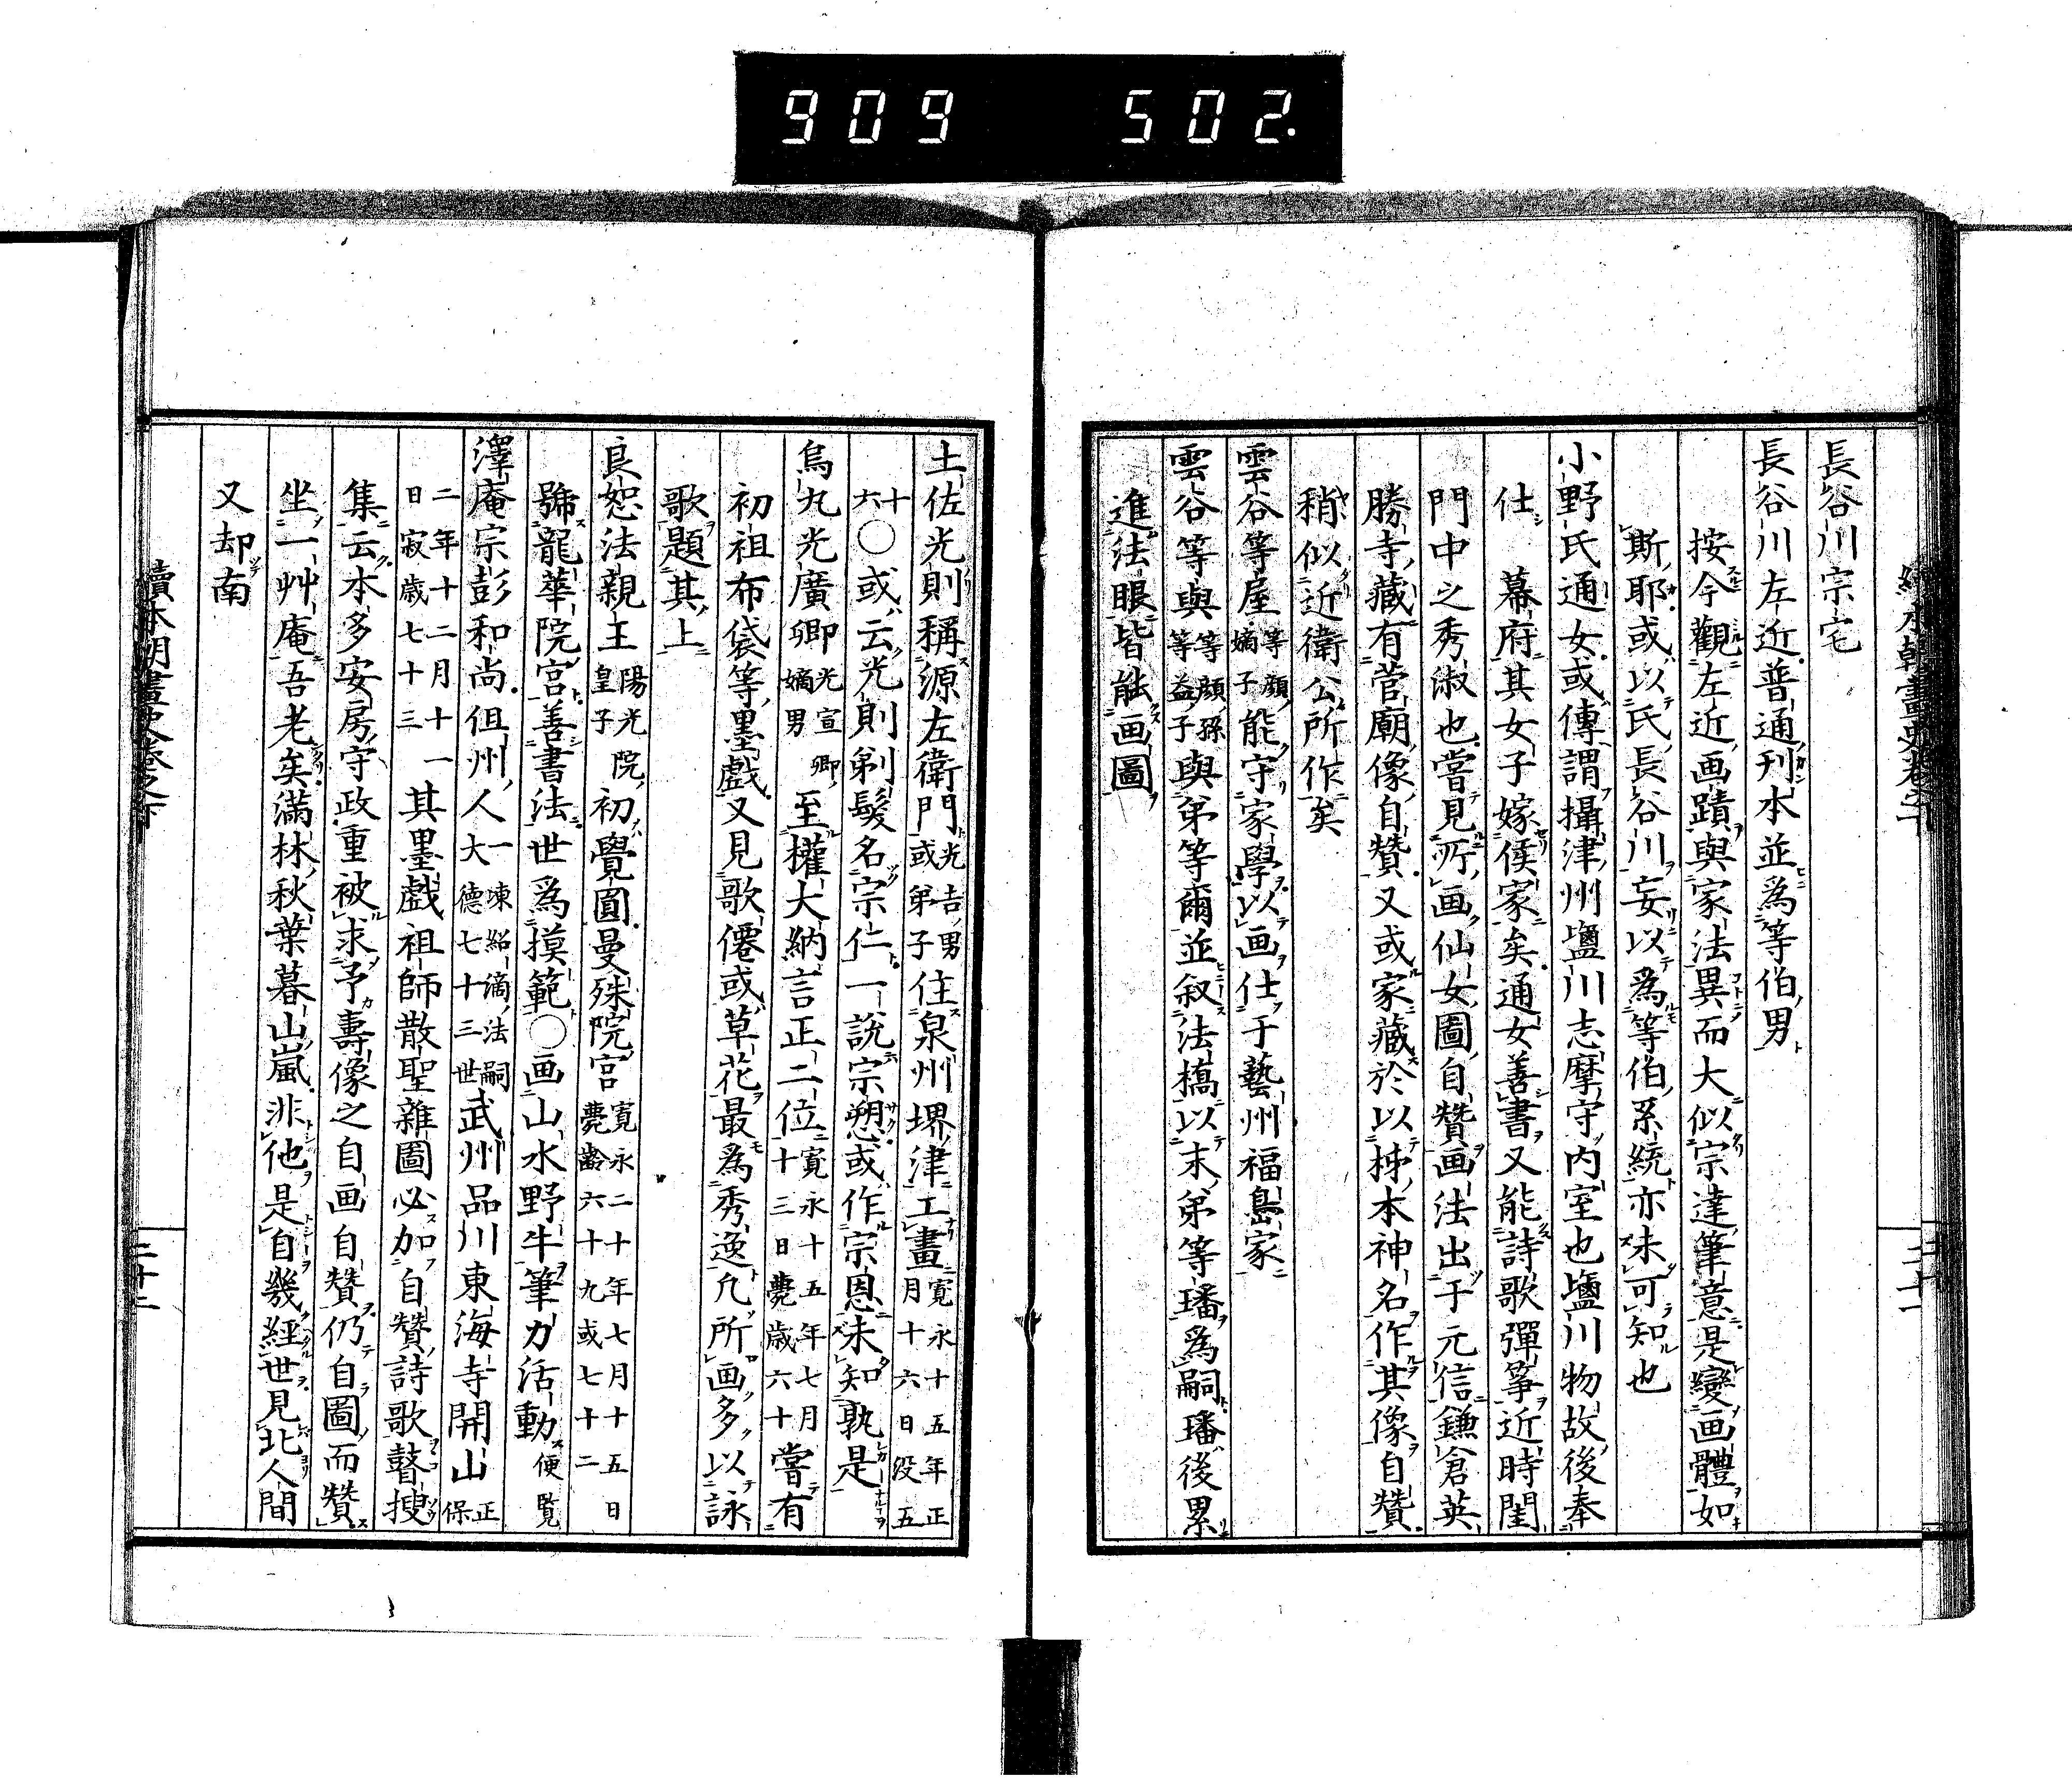 909 502.
長谷川宗宅
長谷川左近普通刊本並為等伯男
按今觀左近画蹟與家法異而大似宗達筆意是變画體如
斯耶或以氏長谷川妄以為等伯系統亦未可知也
小野氏通女或傳謂攝津州鹽川志摩守内室也鹽川物故後奉
仕　幕府其女子嫁侯家矣通女善書又能詩歌彈箏近時閨
門中之秀淑也嘗見所画仙女圖自贊画法出于元信鎌倉英
勝寺藏有菅廟像自贊又或家藏於以梼本神名作其像自贊
稍似近衛公所作矣
雲谷等屋等顔嫡子能守家學以画仕于藝州福島家
雲谷等與等顔孫等益子與弟等爾並叙法橋以末弟等璠為嗣璠後累
進法眼皆能画圖
土佐光則稱源左衛門光吉男或弟子住泉州堺津工畫寛永十五年正月十六日没五
十六〇或云光則剃髮名宗仁一說宗愬或作宗恩未知孰是
烏丸光廣卿光宣卿嫡男至權大納言正二位寛永十五年七月十三日薨歳六十嘗有
初祖布袋等墨戲又見歌僊或草花最為秀逸凢所画多以詠
歌題其上
良恕法親王陽光院皇子初覺圓曼殊院宮寛永二十年七月十五日薨齡六十九或七十二
號龍華院宮善書法世為摸範〇画山水野牛筆力活動便覧
澤庵宗彭和尚但州人一凍紹滴法嗣大德七十三世武州品川東海寺開山正保
二年十二月十一日寂歳七十三其墨戲祖師散聖雜圖必加自贊詩歌瞽搜
集云本多安房守政重被求予壽像之自画自贊仍自圖而贊
坐一艸庵吾老矣滿林秋葉暮山嵐非他是自幾経世見北人間
又却南
續本朝畫史卷之下
二十二